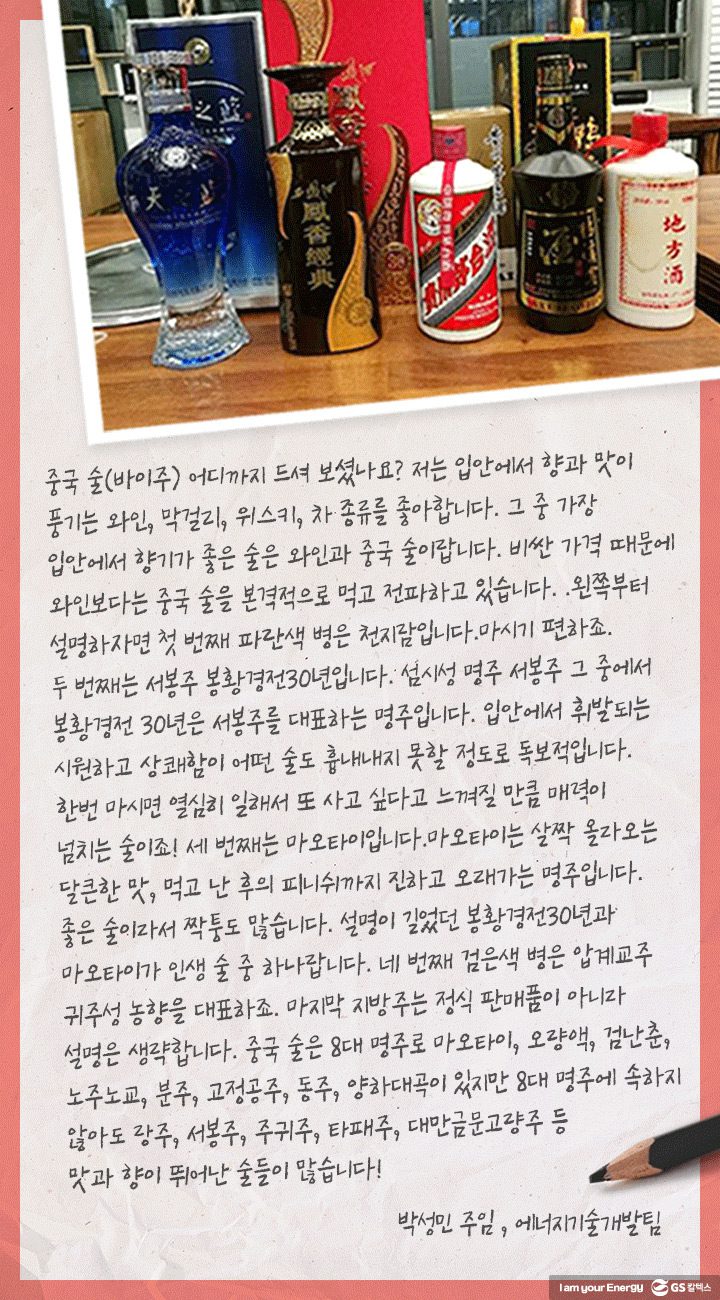 天之蓝
鳳香經典
贵州茅台酒
地方酒
중국 술(바이주) 어디까지 드셔 보셨나요? 저는 입안에서 향과 맛이
풍기는 와인, 막걸리, 위스키, 차 종류를 좋아합니다. 그 중 가장
입안에서 향기가 좋은 술은 와인과 중국 술이랍니다. 비싼 가격 때문에
와인보다는 중국 술을 본격적으로 먹고 전파하고 있습니다. .왼쪽부터
설명하자면 첫 번째 파란색 병은 천지람입니다.마시기 편하죠.
두 번째는 서봉주 봉황경전30년입니다. 섬시성 명주 서봉주 그 중에서
봉황경전 30년은 서봉주를 대표하는 명주입니다. 입안에서 휘발되는
시원하고 상쾌함이 어떤 술도 흉내내지 못할 정도로 독보적입니다.
한번 마시면 열심히 일해서 또 사고 싶다고 느껴질 만큼 매력이
넘치는 술이죠! 세 번째는 마오타이입니다.마오타이는 살짝 올라오는
달큰한 맛, 먹고 난 후의 피니쉬까지 진하고 오래가는 명주입니다.
좋은 술이라서 짝퉁도 많습니다. 설명이 길었던 봉황경전30년과
마오타이가 인생 술 중 하나랍니다. 네 번째 검은색 병은 압계교주
귀주성 농향을 대표하죠. 마지막 지방주는 정식 판매품이 아니라
설명은 생략합니다. 중국 술은 8대 명주로 마오타이, 오량액, 검난춘,
노주노교, 분주, 고정공주, 동주, 양하대곡이 있지만 8대 명주에 속하지
않아도 랑주, 서봉주, 주귀주, 타패주, 대만금문고량주 등
맛과 향이 뛰어난 술들이 많습니다!
박성민 주임 , 에너지기술개발팀
I am your Energy GS칼텍스